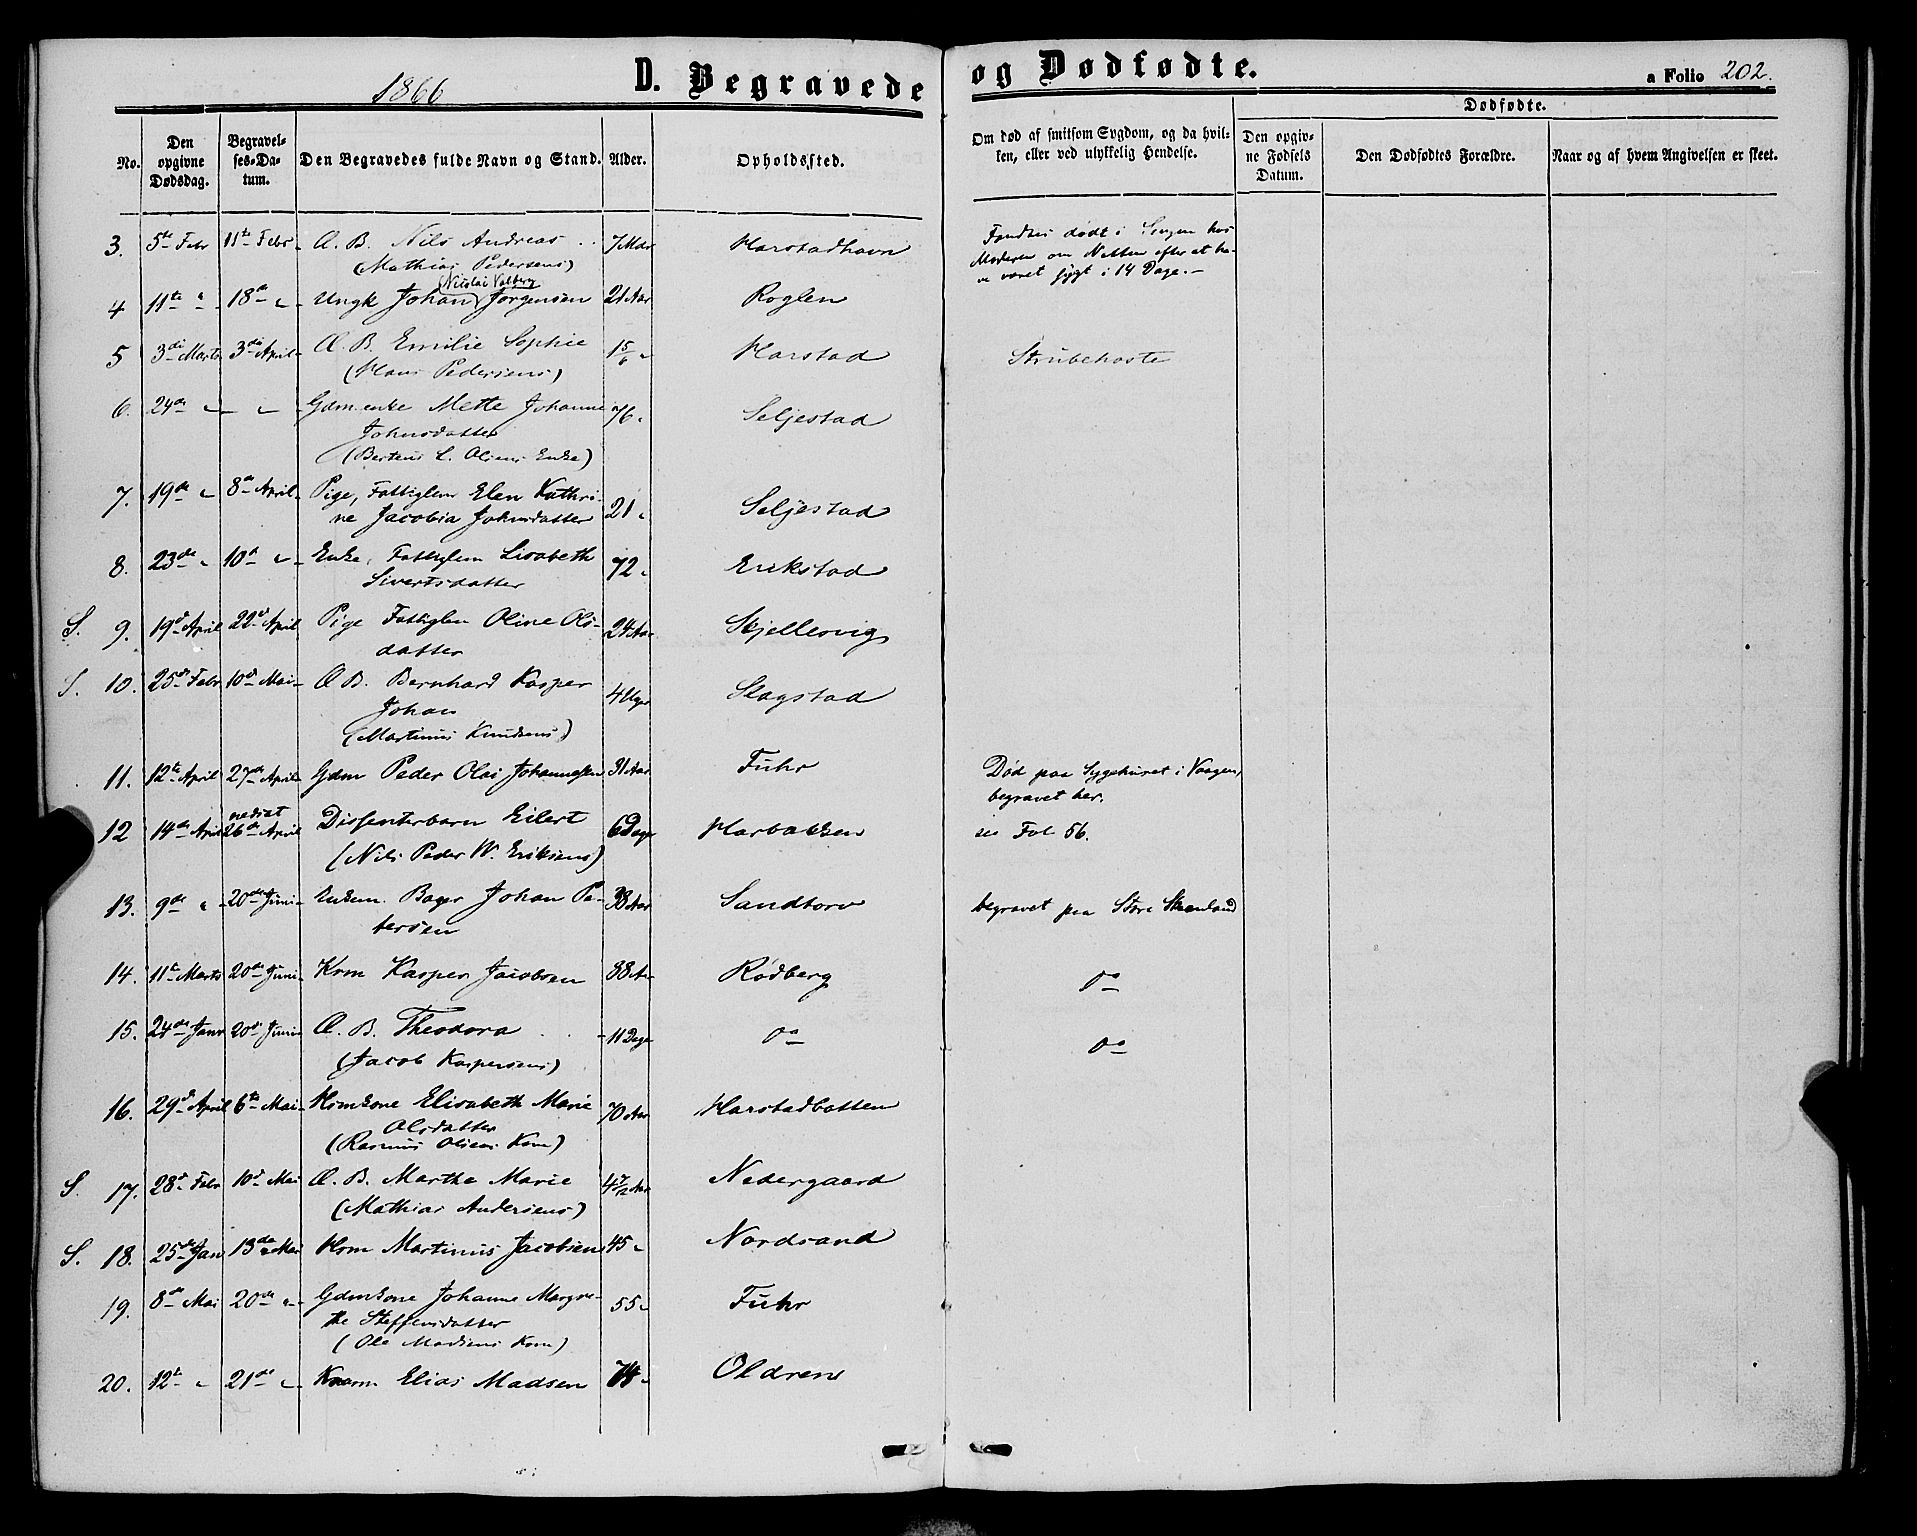 1866
D. Begravede og Dødfødte.
a Folio 202.
No.
Den opgivne Dødsdag.
Begravel-ses-Da-tum.
Den Begravedes fulde Navn og Stand.
Alder.
Opholdssted.
Om død af smitsom Sygdom, og da hvil-
ken, eller ved ulykkelig Hendelse.
Dødfødte.
Den opgiv-ne Fødsels Datum.
Den Dødfødtes Forældre.
Naar og af hvem Angivelsen er skeet.
3. 5te Febr 11te Febr Æ. B. Nils Andreas 7 Mdr Harstadhavn Fandtes dødt i Sengen hos
(Mathias Pedersens) Moderen om Natten efter at ha-
ve været sygt i 14 Dage.
Nicolai Volberg
4 11te " 18de " Ungk Johan Jørgensen 21 Aar Roglen
5 3die Marts 3die April Æ. B. Emilie Sophie 1 5/6 " Harstad Strubehoste
(Hans Pedersens)
6. 24de " " Gdmenke Mette Johanne 76 " Seljestad
Johnsdatter
(Berteus L. Olsens Enke)
7. 19de " 8de April Pige, Fattiglem Elen Kathri- 21 " Seljestad
ne Jacobia Johnsdatter
8. 23de " 10d " Enke, Fattiglem Lisabeth 72 " Erikstad
Sivertsdatter
S. 9. 19d April 22d April Pige Fattiglem Oline Ols- 24 Aar Skjellesvig
datter
S. 10. 25d Febr 10d Mai Æ B. Bernhard Kasper 4 Uger Slagstad
Johan
(Martinus Knudsens)
11. 12te April 27de April Gdm Peder Olai Johannessen 31 Aar Fuhr Død paa Sygehuset i Vaagen,
begravet her.
nedsat
12 14de April 26de April Dissenterbarn Eilert 6 Dage Harbakken se Fol 56.
(Nils Peder W. Eriksens)
13. 9de " 20de Juni Enkem. Bager Johan Pe- 38 Aar Sandtorv begravet paa Store Skanland
tersen
14. 11te Marts 20de Juni Krm Kasper Jacobsen 88 Aar Rødberg do
15. 24de Janr 20d Junii Æ. B. Theodora 11 Dage do do
(Jacob Kaspersens)
16. 29d April 6te Mai Hsmkone Elisabeth Marie 70 Aar Harstadbotten
Olsdatter
(Rasmus Olsens Kone)
S. 17. 28d Febr 10d Mai Æ. B. Marthe Marie 4 7/12 Aar Nedergaard
(Mathias Andersens)
S. 18. 25de Jan 13de Mai Hsm Martinus Jacobsen 45 " Nordsand
19. 8de Mai 20de " Gdmkone Johanne Margre- 55 " Fuhr
the Steffensdatter
(Ole Madsens Kone)
20. 12te " 21de " Elias Madsen 74 " Oldren